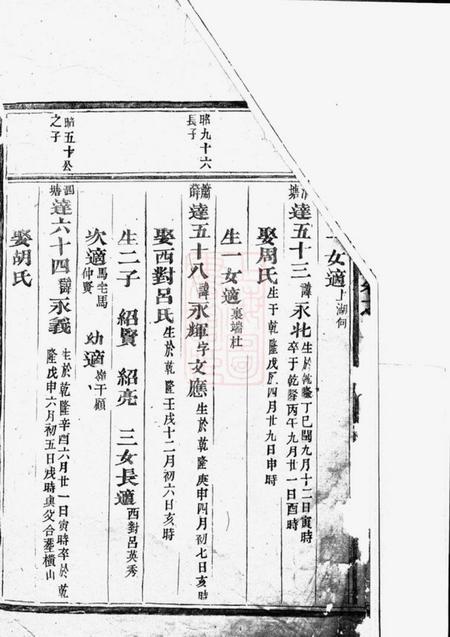 一女適上湖何
塘達五十三諱永牝生於乾隆丁巳閏九月十二日寅時卒于乾隆丙午九月廿一日酉時
娶周氏生于乾隆戊辰四月廿九日申時
生一女適裏端杜
昭九十六長子
薛達五十八諱永輝字文應生於乾隆庚申四月初七日亥時
娶西對呂氏生於乾隆壬戌十二月初六日亥時
生二子 紹賢 紹亮 三女長適西對呂英秀
次適馬宅馬仲賢 幼適千頎
昭五十公之子
泗塘達六十四諱永義生於乾隆辛酉六月廿一日寅時卒於乾隆戊申六月初五日戌時與父合塟橫山
娶胡氏